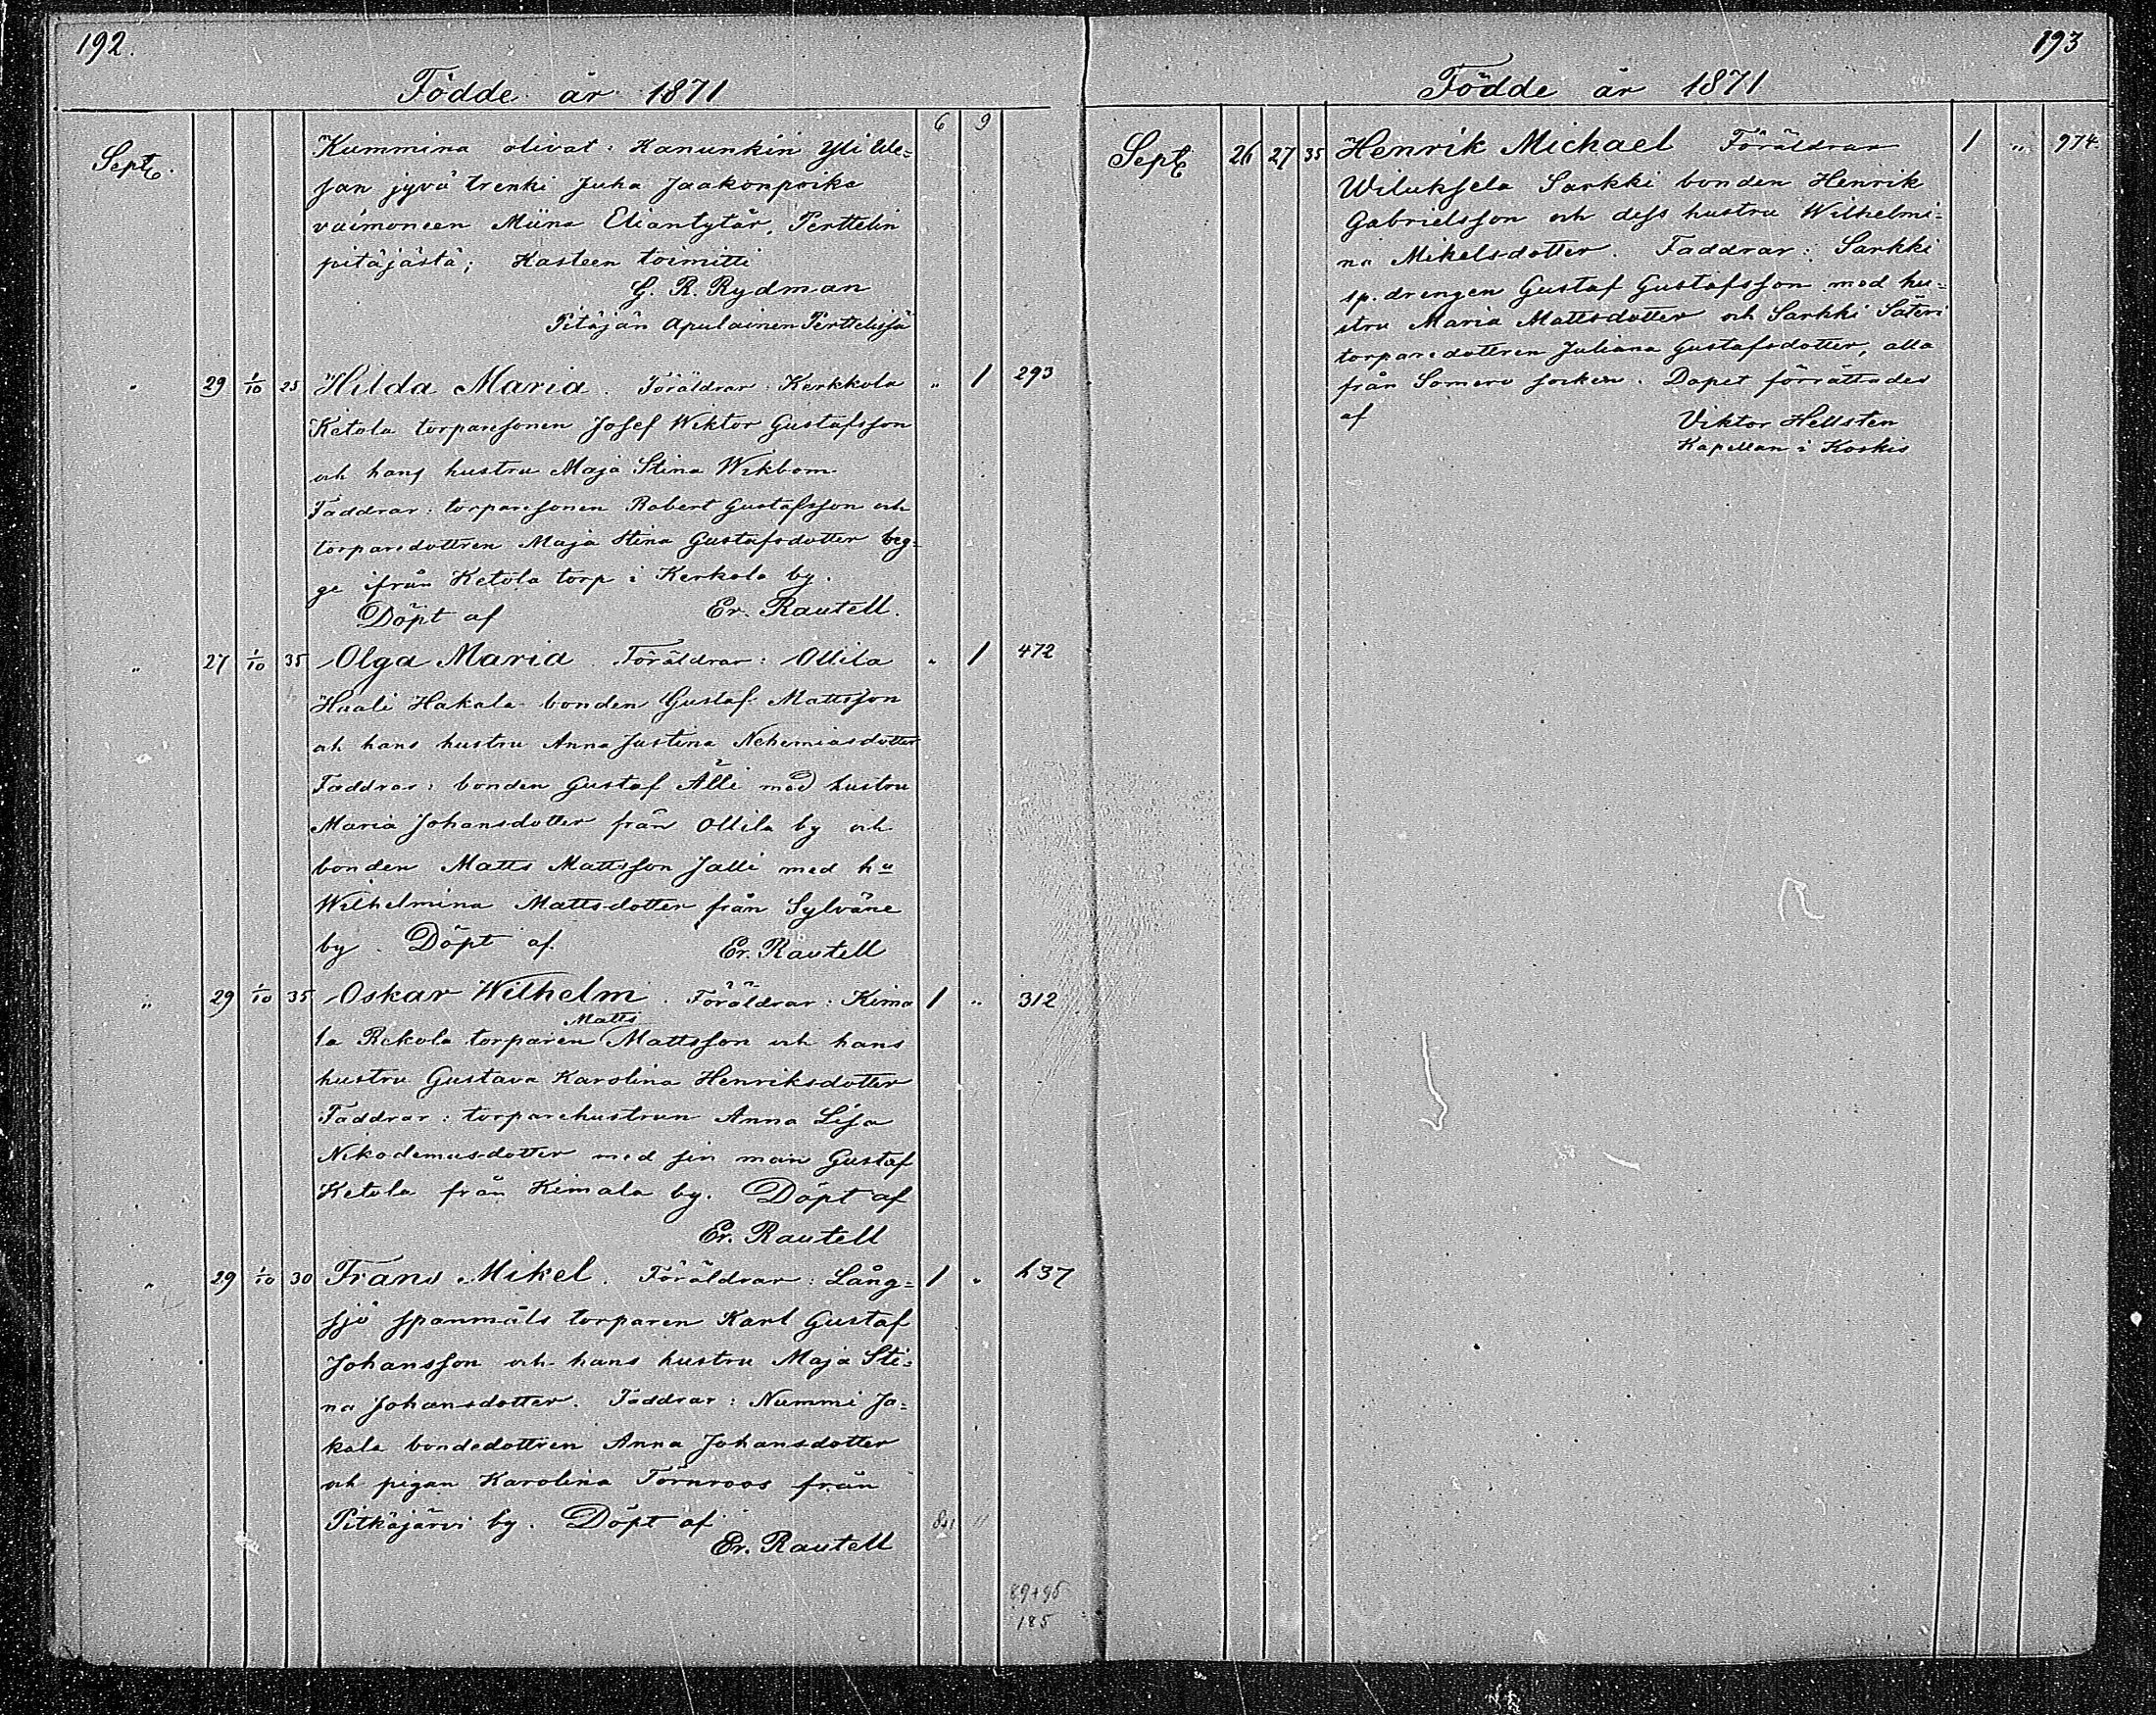 192.
Födde år 1871
6 9
Sept. Kummina olivat: Hanunkin Yli
jan jyvä trenki Juha Jaakonpoika
vaimoneen Miina Eliantytär, Perttelin
pitäjästä; Kasteen toimitti
G. R. Rydman
Pitäjän Apulainen Perttelissä
" 29 1/10 25 Hilda Maria. Föräldrar: Kerkkola " 1 293
Ketola torparesonen Josef Wiktor Gustafsson
och hans hustru Maja Stina Wikbom.
Faddrar: torparesonen Robert Gustafsson och
torparedottren Maja Stina Gustafsdotter beg-
ge ifrån Ketola torp i Kerkola by.
Döpt af Er. Rautell.
" 27 1/10 35 Olga Maria. Föräldrar: Ollila " 1 472
Huali Hakala bonden Gustaf Mattsson
och hans hustru Anna Justina Nehemiasdotter
Faddrar: bonden Gustaf Älli med hustru
Maria Johansdotter från Ollila by och
bonden Matts Mattsson Jalli med hu
Wilhelmina Mattsdotter från Sylväne
by. Döpt af. Er. Rautell
" 29 1/10 35 Oskar Wilhelm. Föräldrar: Kima 1 " 312
Matts
la Rekola torparen Mattsson och hans
hustru Gustava Karolina Henriksdotter
Faddrar: torparehustrun Anna Lisa
Nikodemusdotter med sin man Gustaf
Ketola från Kimala by. Döpt af
Er. Rautell
" 29 1/10 30 Frans Mikel. Föräldrar: Lång- 1 " 637
sjö spanmåls torparen Karl Gustaf
Johansson och hans hustru Maja Sti-
na Johansdotter. Faddrar: Nummi Ja-
kala bondedottren Anna Johansdotter
och pigan Karolina Törnroos från
Pitkäjärvi by. Döpt af
Er. Rautell
89+96
185
193
Födde år 1871
Sept 26 27 35 Henrik Michael Föräldrar 1 " 974
Wiluksela Sarkki bonden Henrik
Gabrielsson och dess hustru Wilhelmi-
na Mikelsdotter. Faddrar: Sarkki
sp. drengen Gustaf Gustafsson med hu-
stru Maria Mattsdotter och Sarkki Säteri
torparedottren Juliana Gustafsdotter, alla
från Somero socken. Dopet förrättades
af Viktor Hellsten
Kapellan i Koskis